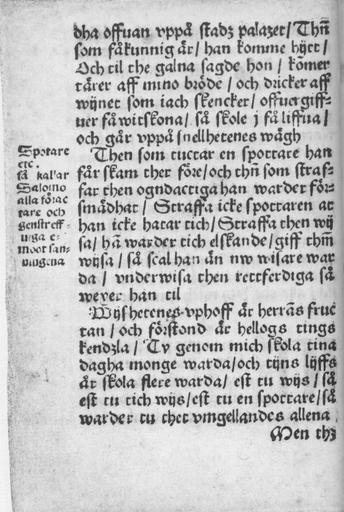 dha offuan vppå stadz palazet / Thñ
som fåkunnig är / han komme hijt /
Och til the galna sagde hon / kõmer
tärer aff mino bröde / och dricker aff
wijnet som iach skencker / offuergiff-
uer fåwitskona / så skole j få liffua /
och går vppå snellhetenes wägh
Spotare
etc.
så kallar
Salomo
alla förac
tare och
genstreff-
uiga e-
moot san-
ningena
Then som tuctar en spottare han
får skam ther före / och thñ som straf-
far then ogudactiga han warder för-
smädhat / Straffa icke spottaren at
han icke hatar tich / Straffa then wij
sa / hã warder tich elskande / giff thm̃
wijsa / så scal han än nw wisare war
da / vnderwisa then rettferdiga så
wexer han til
Wijshetenes vphoff är herrãs fruc
tan / och förstond är hellogs tings
kendzla / Ty genom mich skola tina
dagha monge warda / och tijns lijffs
är skola flere warda / est tu wijs / så
est tu tich wijs / est tu en spottare / så
warder tu thet vmgellandes allena
Men thz